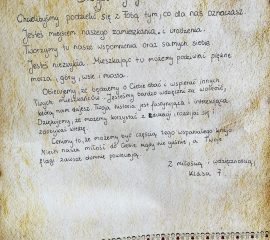 Chcielibyśmy podzielić się z Tobą tym, co dla nas oznaczasz.
Jesteś miejscem naszego zamieszkania i urodzenia.
Tworzymy tu nasze wspomnienia oraz samych siebie.
Jesteś niezwykła. Mieszkając tu możemy podziwiać piękne
morza, góry, wsie i miasta.
Obiecujemy, że będziemy o Ciebie dbać i wspierać innych
Twych mieszkańców. Jesteśmy bardzo wdzięczni za wolność,
którą nam dajesz. Twoja historia jest fascynująca i interesująca.
Dziękujemy, że możemy korzystać z edukacji, rozwijać się i
zdobywać wiedzę.
Cenimy to, że możemy być częścią tego wspaniałego kraju.
Niech nasza miłość do Ciebie nigdy nie gaśnie, a Twoje
flagi zawsze dumnie powiewają.
Z miłością i wdzięcznością,
klasa 7